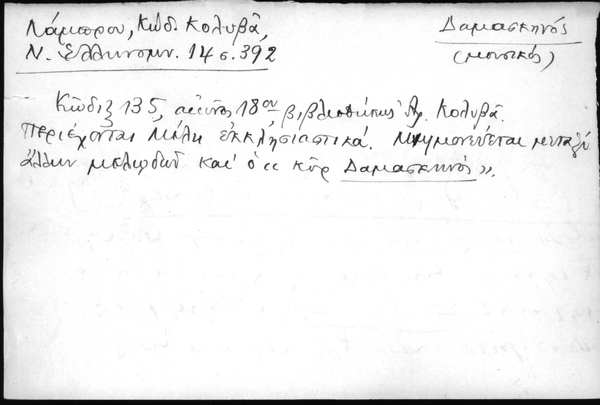 Λάμπρου, Κώδ. Κολυβᾶ,
Ν. Ἑλληνομν. 14 σ. 392
Δαμασκηνός
(μουσικός)
Κῶδιξ 135, αἰῶνος 18ου, βιβλιοθήκης Ἀλ. Κολυβᾶ.
Περιέχονται μέλη ἐκκλησιαστικά. Μνημονεύεται μεταξὺ
ἄλλων μελωδῶν καὶ ὁ «κὺρ Δαμασκηνός».